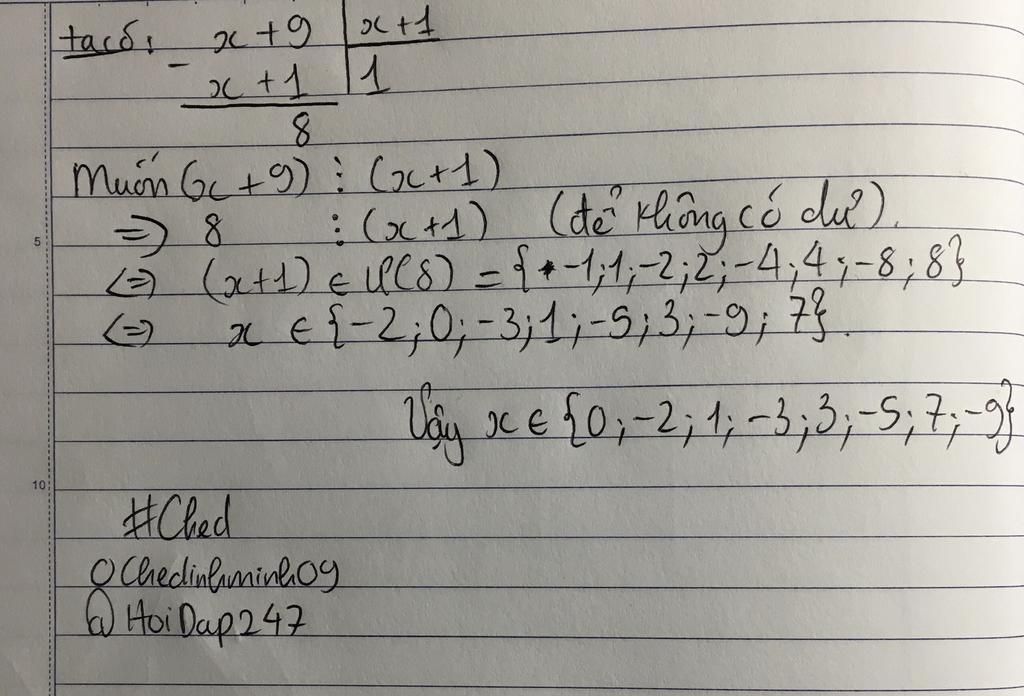 ta có: x + 9 | x + 1
- x + 1 | 1
8
Muốn (x + 9) ⋮ (x + 1)
=> 8 ⋮ (x + 1) (để không có dư).
<=> (x + 1) ∈ Ư(8) = {-1; 1; -2; 2; -4; 4; -8; 8}
<=> x ∈ {-2; 0; -3; 1; -5; 3; -9; 7}.
Vậy x ∈ {0; -2; 1; -3; 3; -5; 7; -9}
#Ched
Chedinhminh09
@HoiDap247
5
10